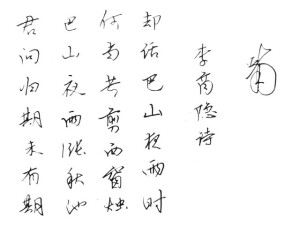 君问归期未有期
巴山夜雨涨秋池
何当共剪西窗烛
却话巴山夜雨时
李商隐诗